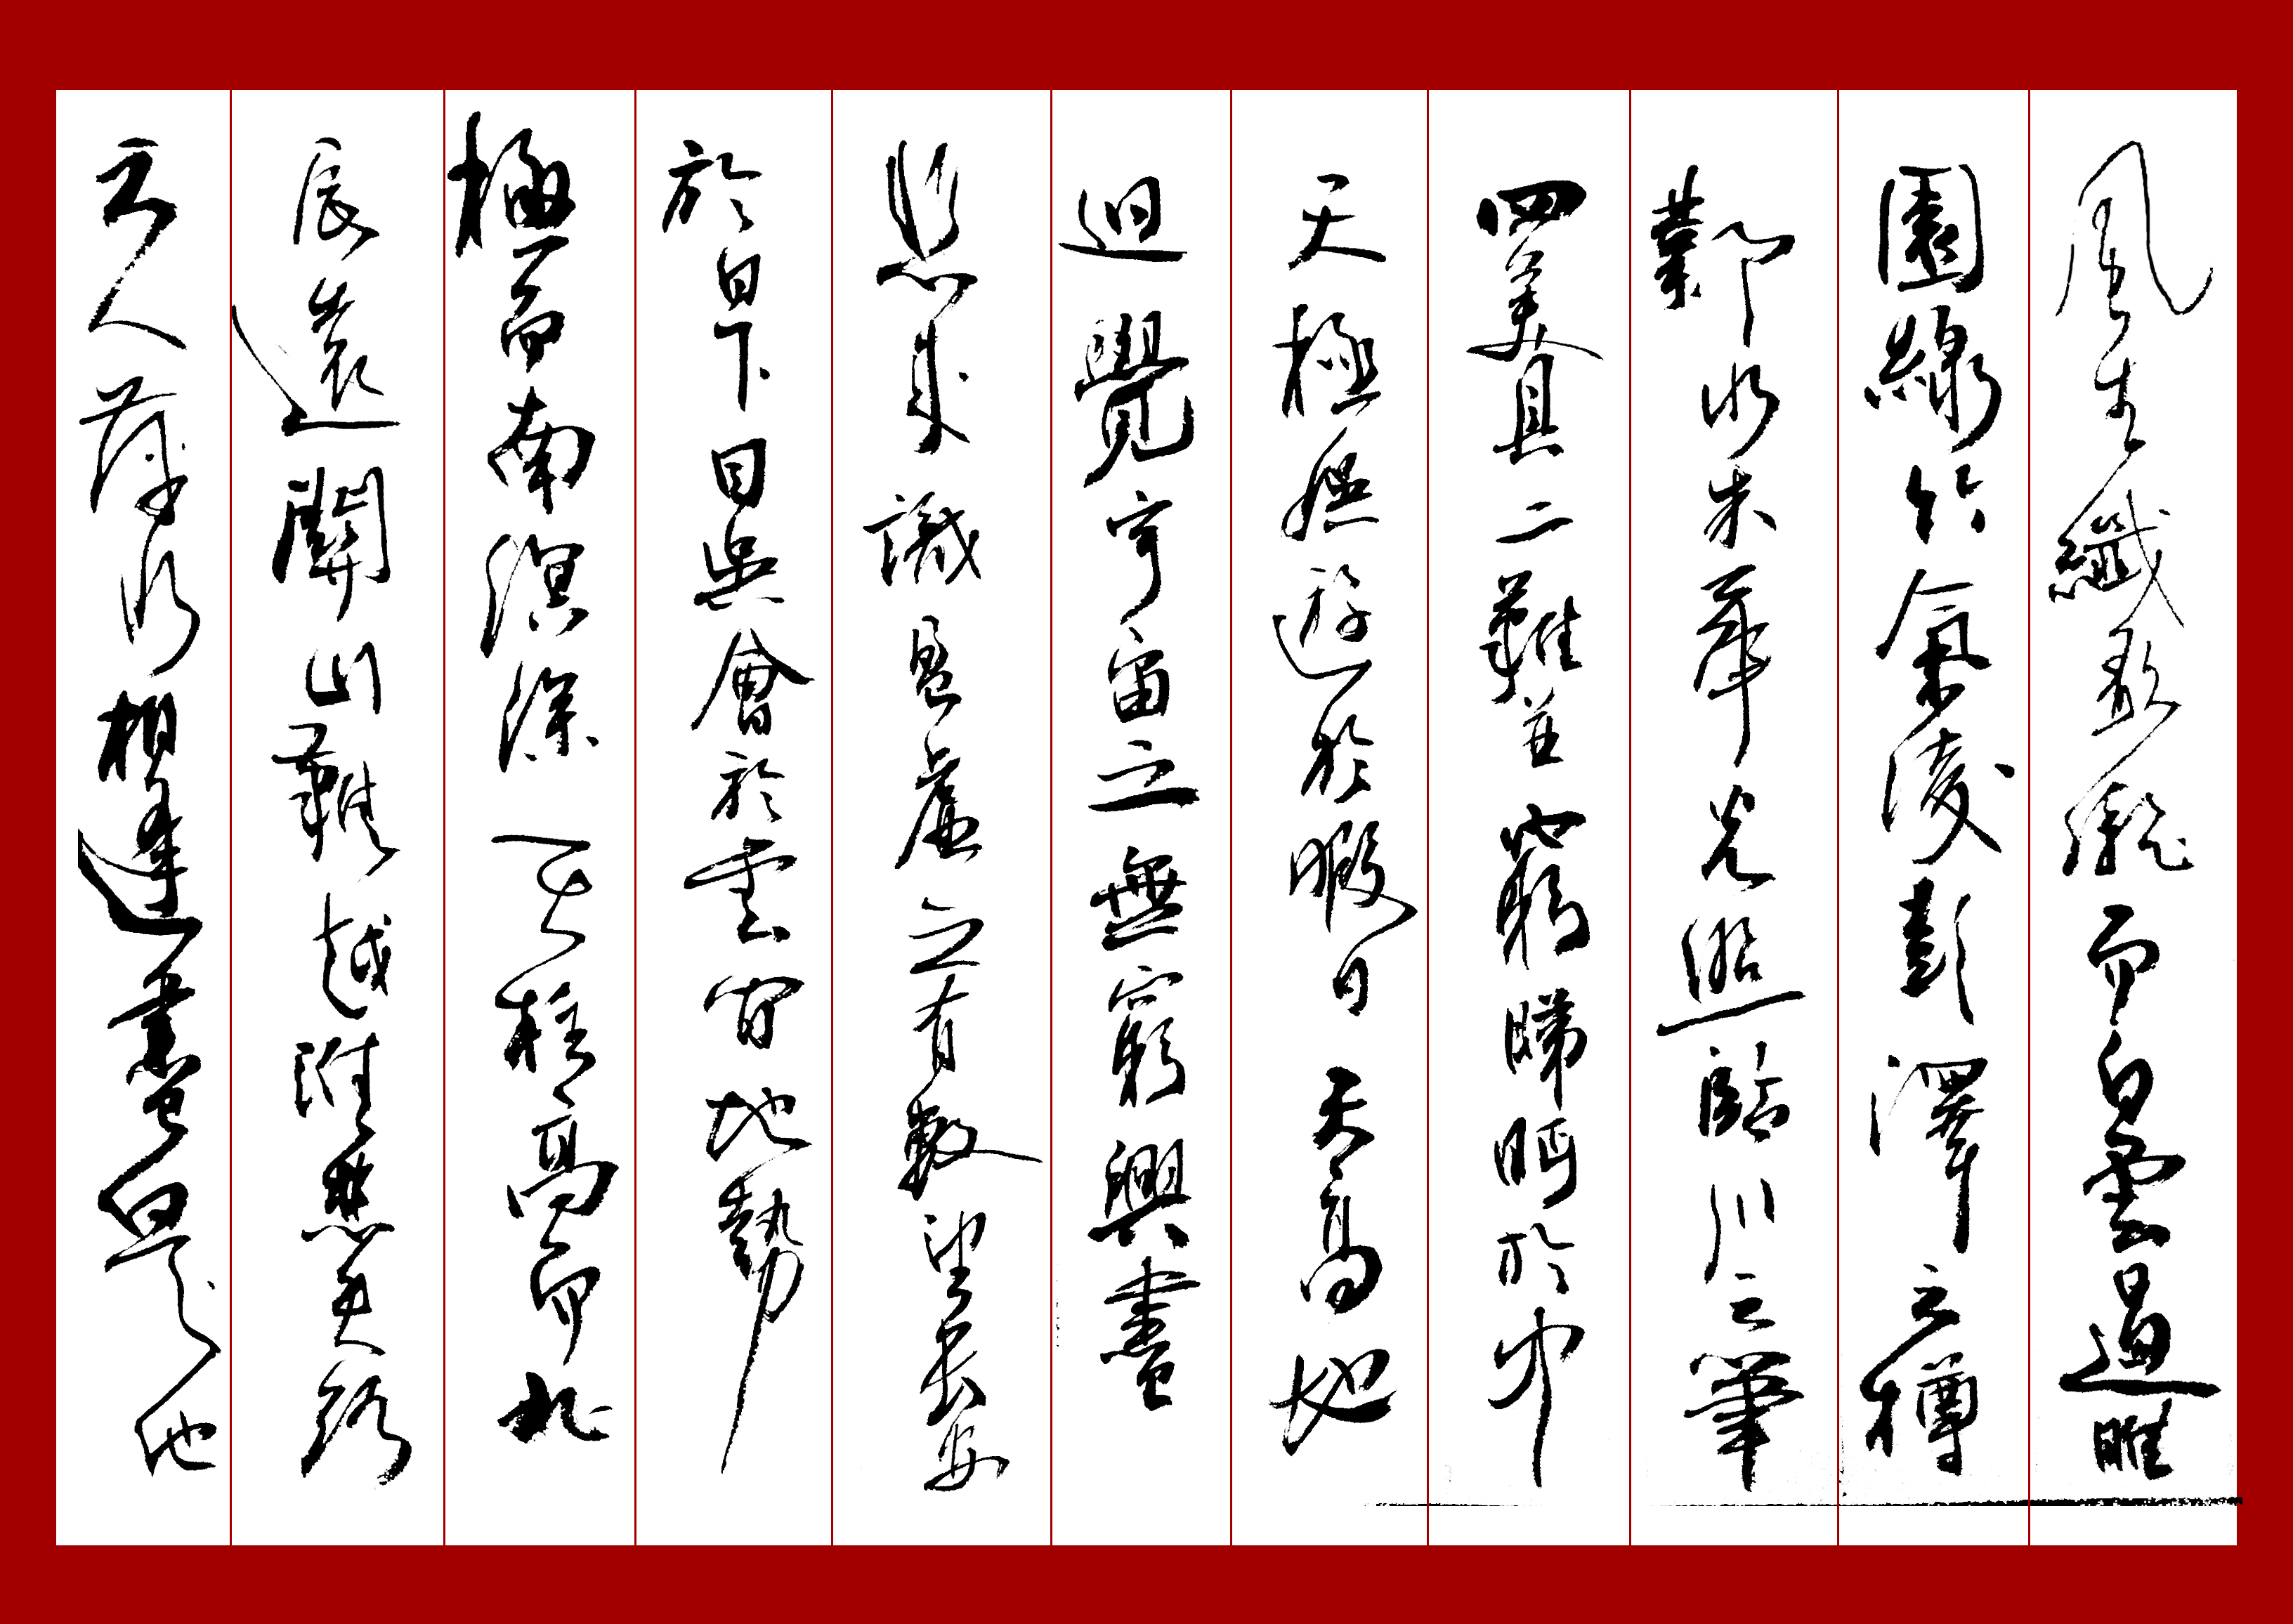 風生纖歌凝而白雲遏睢
園綠竹氣凌彭澤之樽
鄴水朱華光照臨川之筆
四美具二難並窮睇眄於中
天極娛遊於暇日天高地
迥覺宇宙之無窮興盡
悲來識盈虛之有數望長安
於日下目吳會於雲間地勢
極而南溟深天柱高而北
辰遠關山難越誰悲失路
之人萍水相逢盡是他